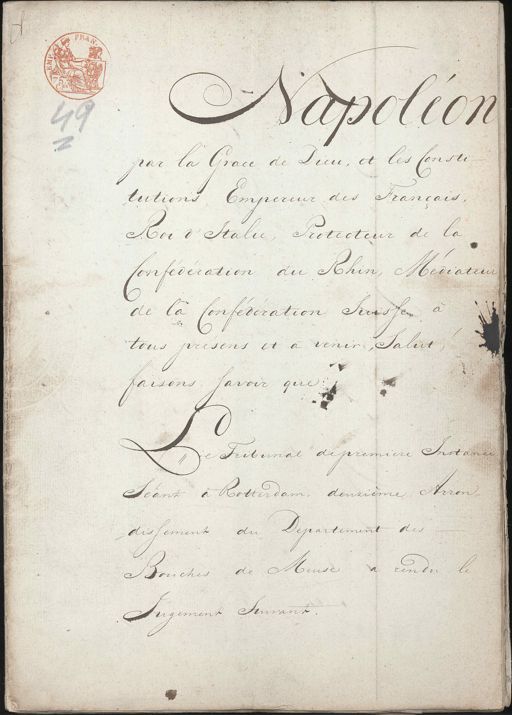 49
Napoléon
par la Grace de Dieu, et les Consti-
tutions Empereur des Français,
Roi d'Italie, Protecteur de la
Confédération du Rhin, Médiateur
de la Confédération Suisse, à
tous présens et a venir, Salut,
faisons savoir que
Le Tribunal de premiere Instance
Séant à Rotterdam, deuxième Arron
dissement du Departement des
Bouches de Meuse a rendu le
Jugement Suivant.